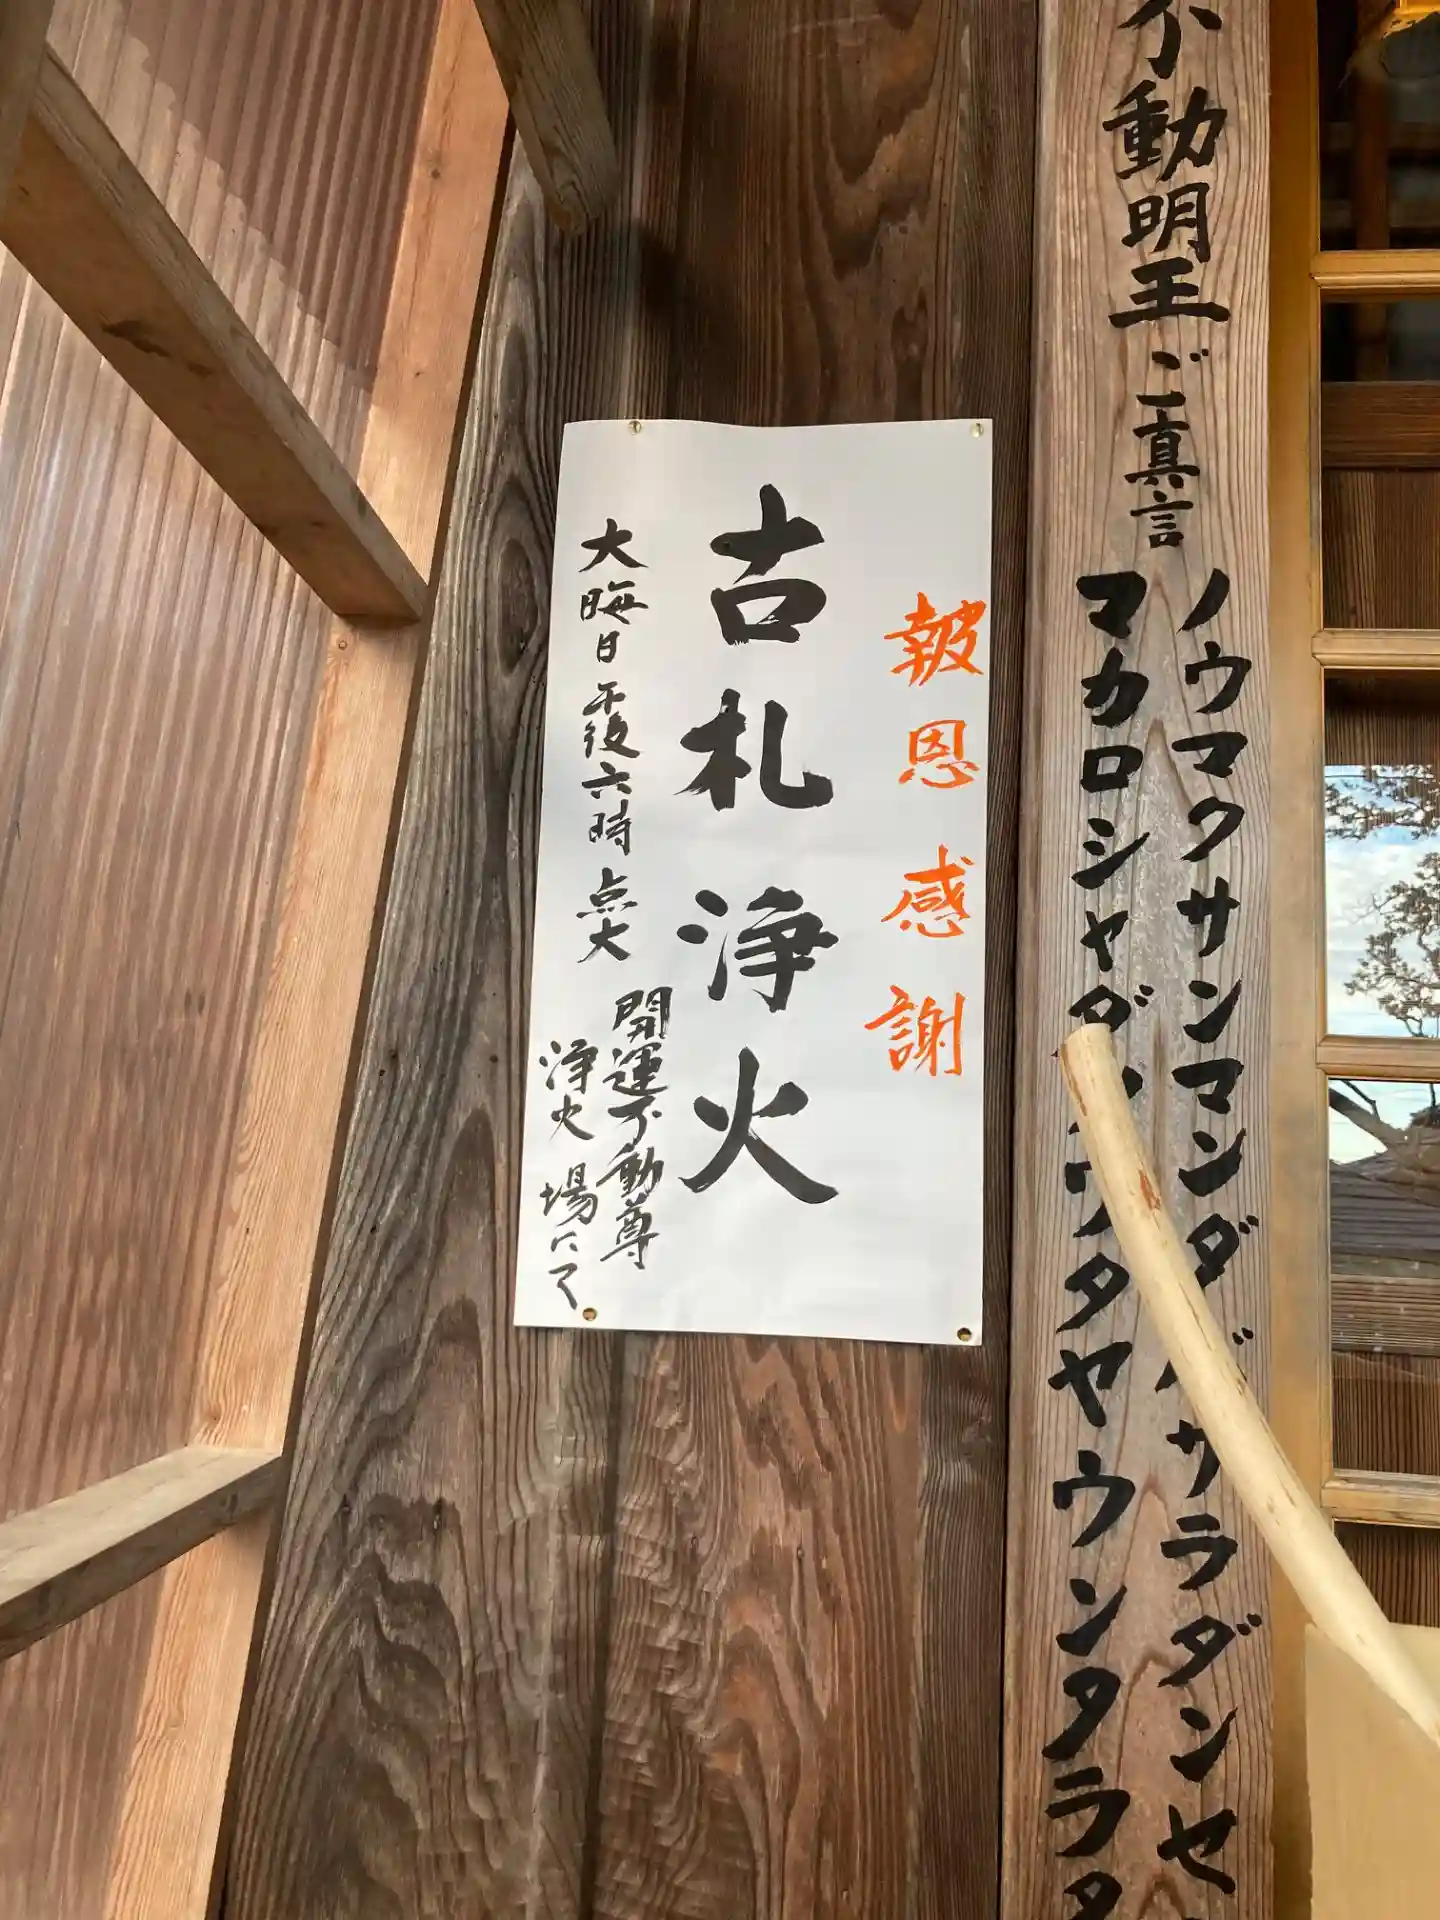 不動明王ご真言
ノウマクサンマンダバサラダンセ
マカロシャダ
タヤウンタラタ
報恩感謝
古札浄火
大晦日午後六時点火
開運不動尊
浄火場にて